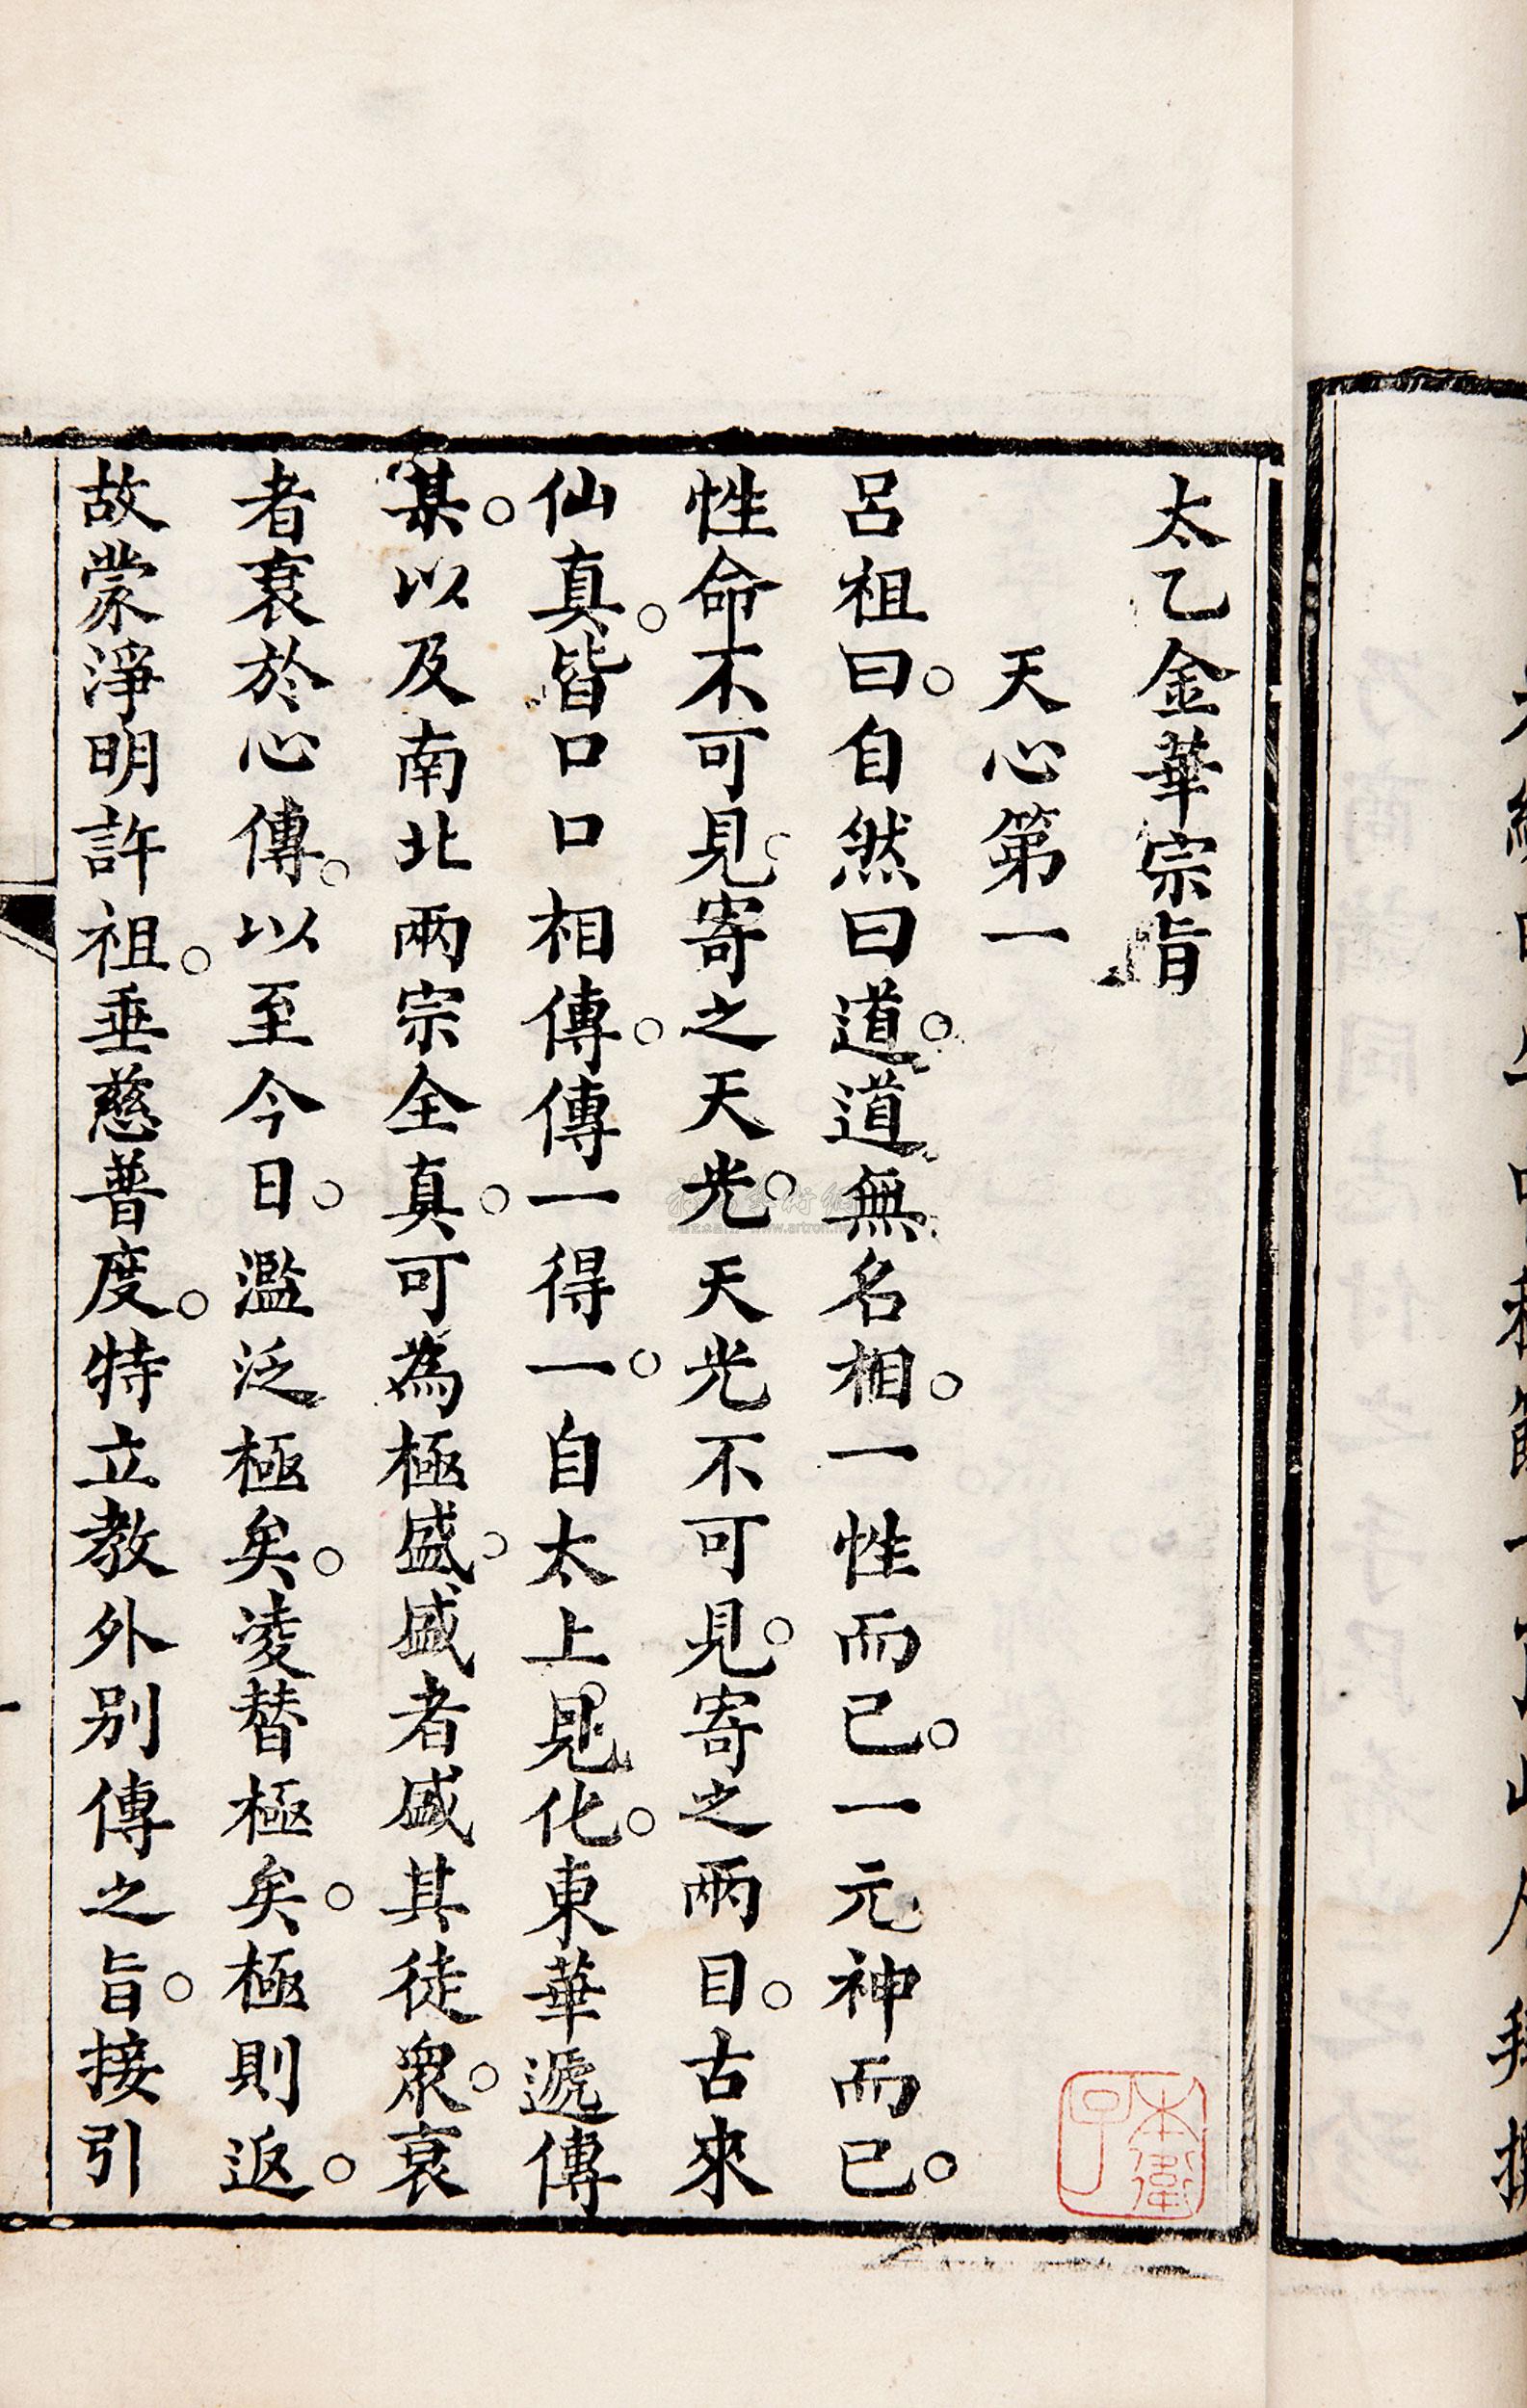 太乙金華宗旨
天心第一
呂祖曰。自然曰道。道無名相。一性而已。一元神而已。
性命不可見。寄之天光。天光不可見。寄之兩目。古來
仙真。皆口口相傳。傳一得一。自太上見化。東華遞傳
某。以及南北兩宗全真。可為極盛。盛者盛其徒衆。衰
者衰於心傳。以至今日。濫泛極矣。凌替極矣。極則返。
故蒙淨明許祖。垂慈普度。特立教外別傳之旨。接引